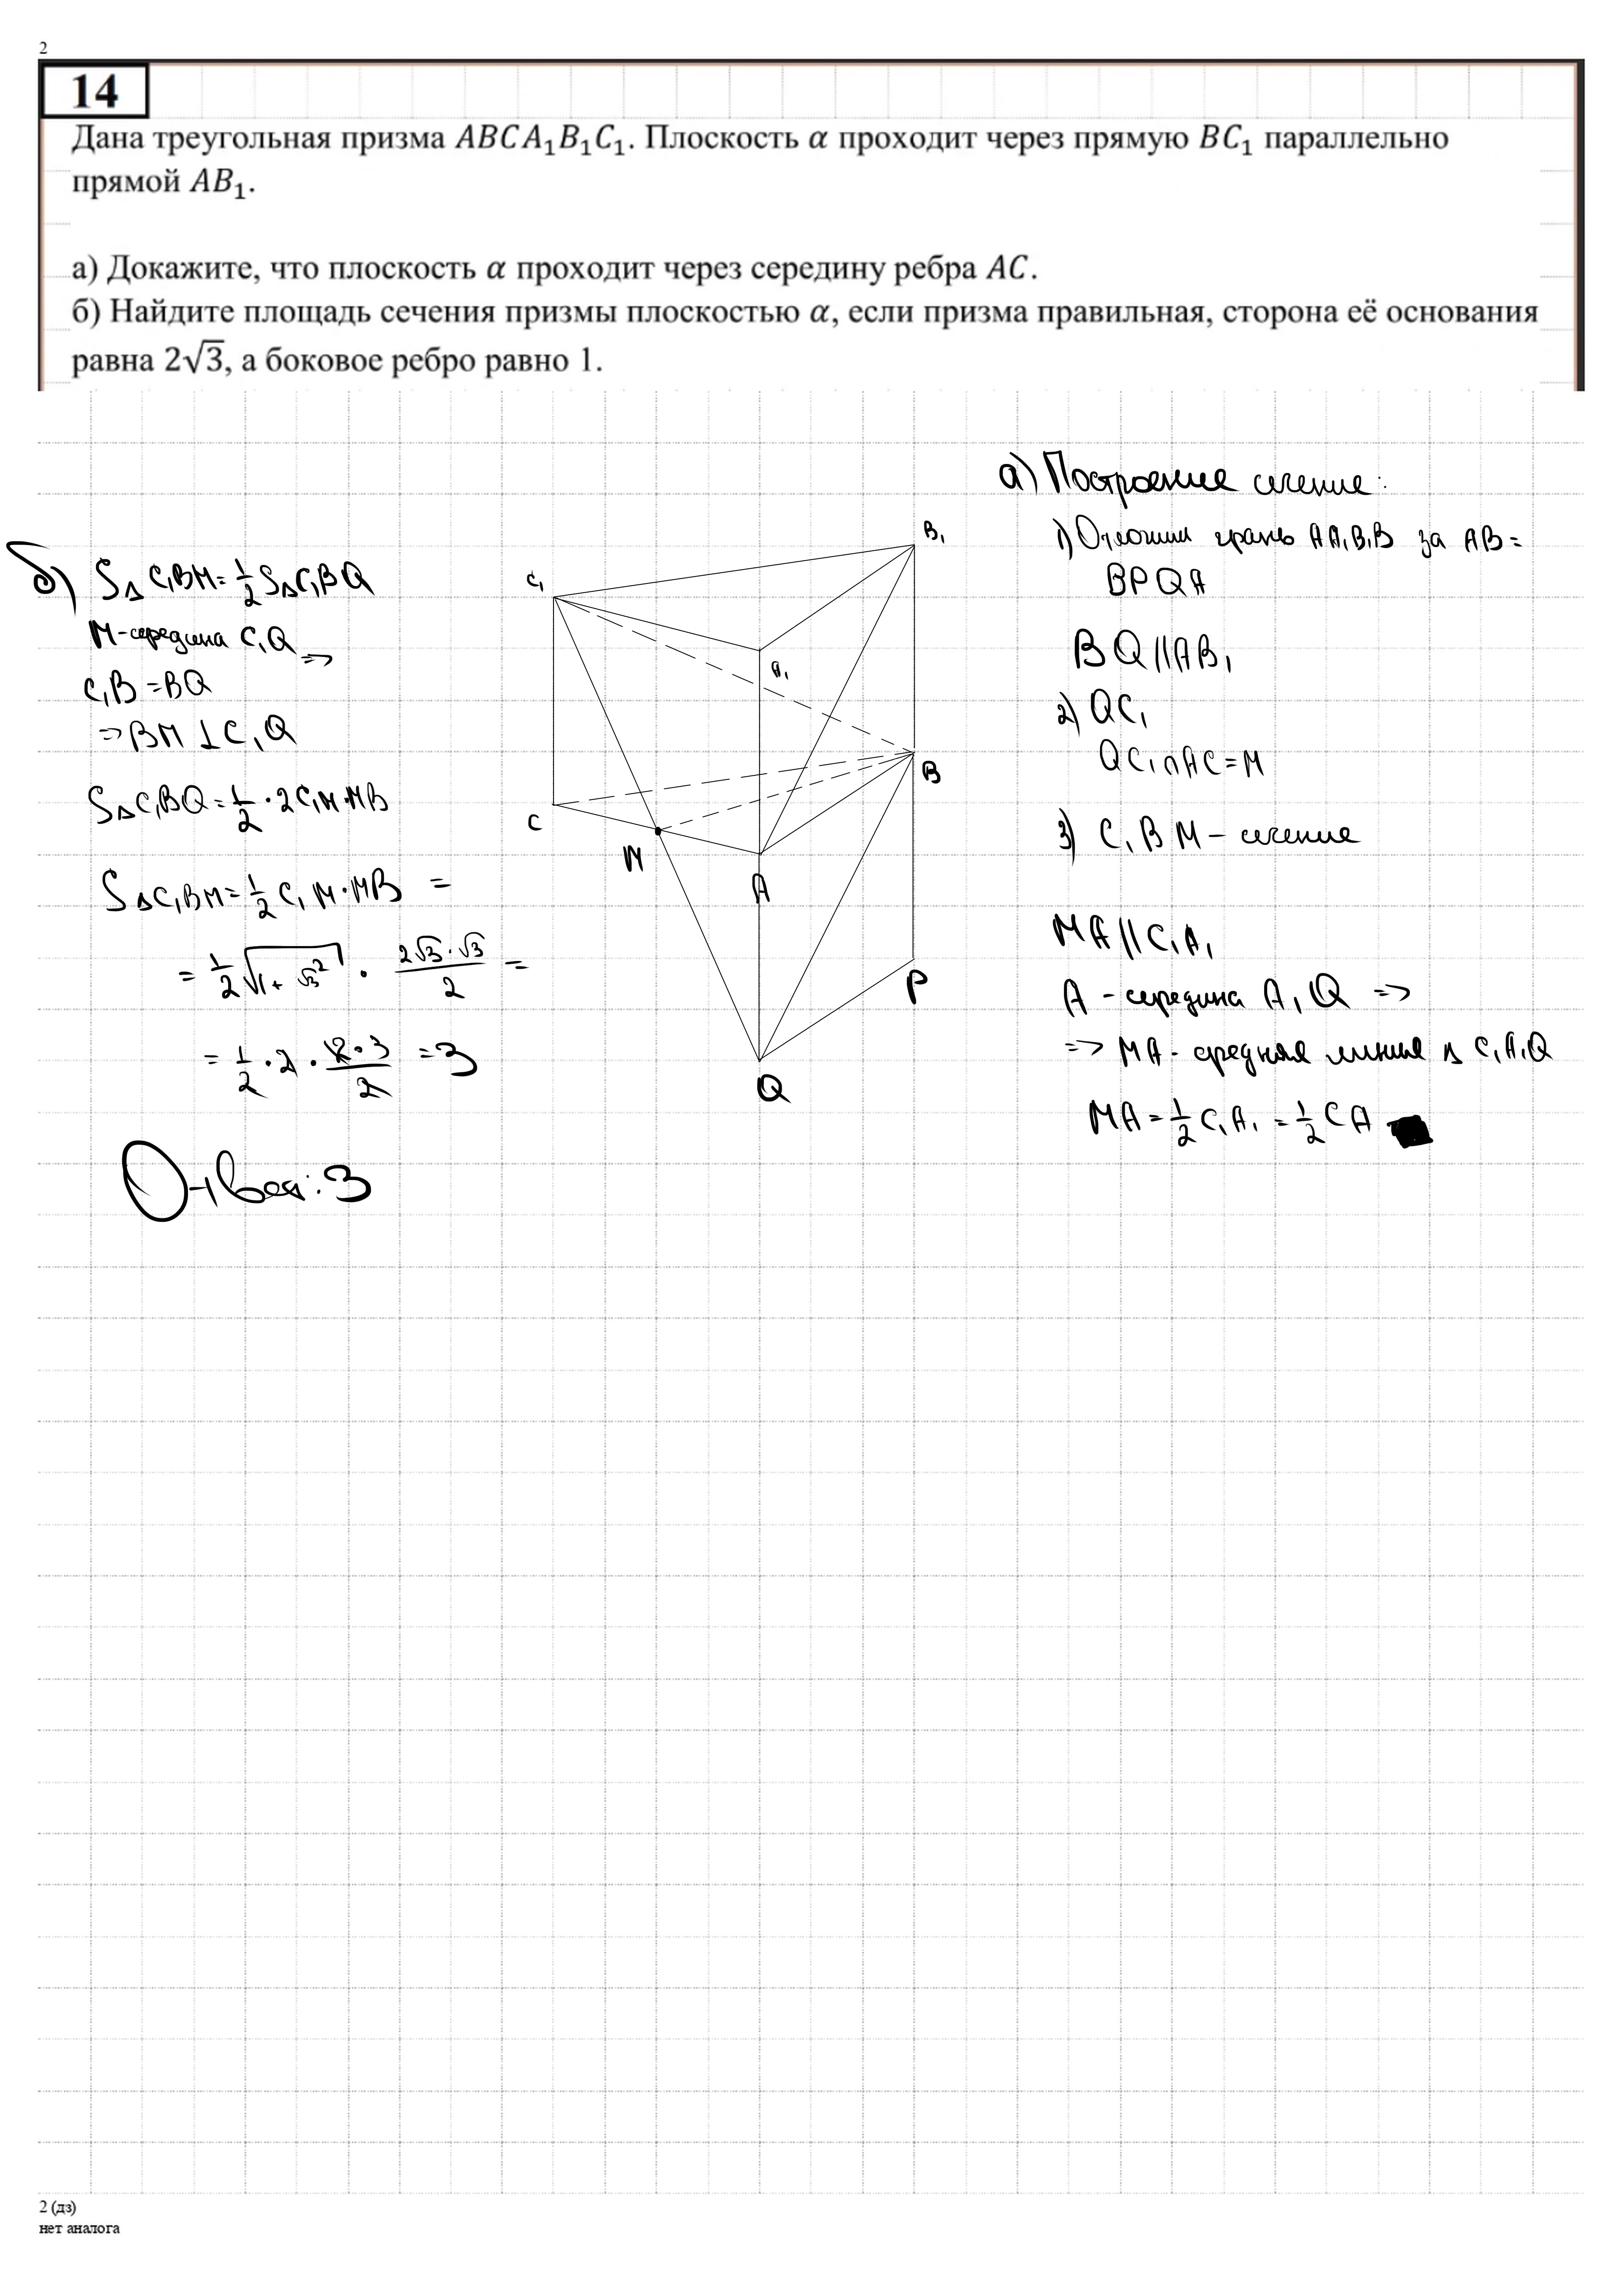 2
14
Дана треугольная призма ABCA₁B₁C₁. Плоскость α проходит через прямую BC₁ параллельно
прямой AB₁.
а) Докажите, что плоскость α проходит через середину ребра AC.
б) Найдите площадь сечения призмы плоскостью α, если призма правильная, сторона её основания
равна 2√3, а боковое ребро равно 1.
а) Построение сечение:
1) Отложим грань AA₁B₁B за AB =
BPQA
BQ || AB₁
2) QC₁
QC₁ ∩ AC = M
3) C₁BM – сечение
MA || C₁A₁
A – середина A₁Q =>
=> MA - средняя линия Δ C₁A₁Q
MA = 1/2 C₁A₁ = 1/2 CA
б) SΔ C₁BM = 1/2 SΔC₁BQ
M - середина C₁Q =>
C₁B = BQ
=> BM ⊥ C₁Q
SΔC₁BQ = 1/2 · 2C₁M · MB
SΔC₁BM = 1/2 C₁M · MB =
= 1/2 √(1 + √3²) · (2√3 · √3)/2 =
= 1/2 · 2 · (2 · 3)/2 = 3
Ответ: 3
B₁
C₁
A₁
B
C
M
A
P
Q
2 (дз)
нет аналога